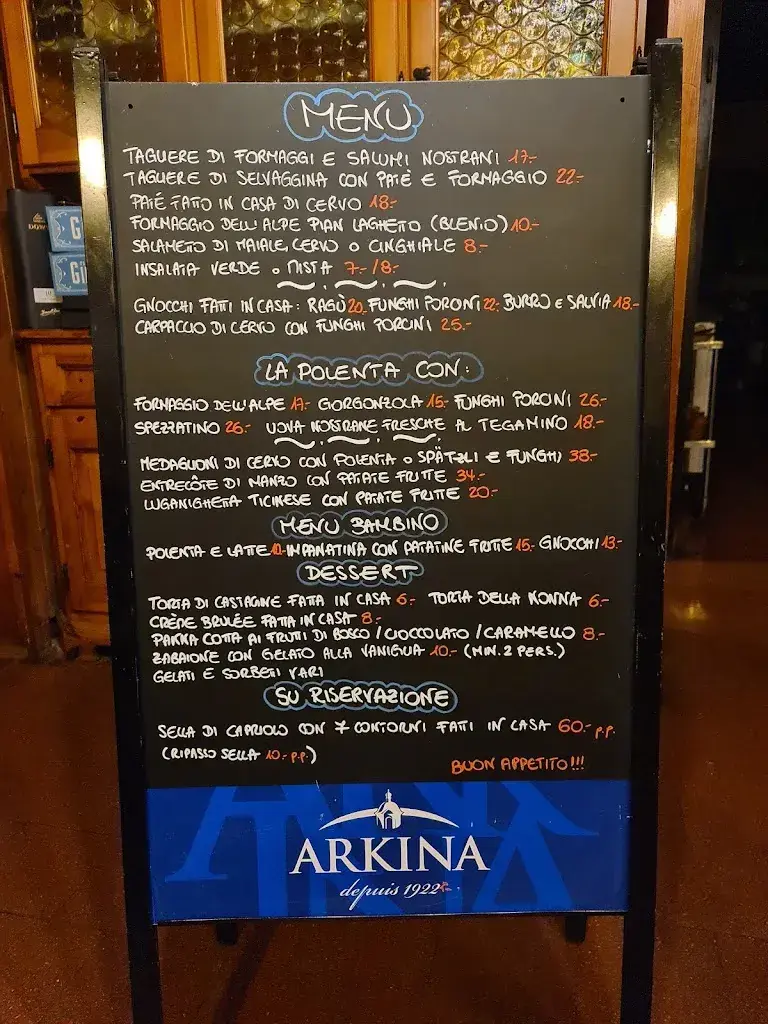 MENU
TAGLIERE DI FORMAGGI E SALUMI NOSTRANI 17.-
TAGLIERE DI SELVAGGINA CON PATÈ E FORMAGGIO 22.-
PATÉ FATTO IN CASA DI CERVO 18.-
FORMAGGIO DELL'ALPE PIAN LAGHETTO (BLENIO) 10.-
SALAMETO DI MAIALE, CERVO O CINGHIALE 8.-
INSALATA VERDE O MISTA 7.-/8.-
GNOCCHI FATTI IN CASA: RAGÙ 20.- FUNGHI PORCINI 22.- BURRO E SALVIA 18.-
CARPACCIO DI CERVO CON FUNGHI PORCINI 25.-
LA POLENTA CON:
FORMAGGIO DELL'ALPE 17.- GORGONZOLA 15.- FUNGHI PORCINI 26.-
SPEZZATINO 26.- UOVA NOSTRANE FRESCHE AL TEGAMINO 18.-
MEDAGLIONI DI CERVO CON POLENTA O SPÄTZLI E FUNGHI 38.-
ENTRECÔTE DI MANZO CON PATATE FRITTE 34.-
LUGANIGHETTA TICINESE CON PATATE FRITTE 20.-
MENU BAMBINO
POLENTA E LATTE 10.- IMPANATINA CON PATATINE FRITTE 15.- GNOCCHI 13.-
DESSERT
TORTA DI CASTAGNE FATTA IN CASA 6.- TORTA DELLA NONNA 6.-
CRÈNE BRULÉE FATTA IN CASA 8.-
PANNA COTTA AI FRUTTI DI BOSCO / CIOCCOLATO / CARAMELLO 8.-
ZABAIONE CON GELATO ALLA VANIGLIA 10.- (MIN. 2 PERS.)
GELATI E SORBETI VARI
SU RISERVAZIONE
SELLA DI CAPRIOLO CON 7 CONTORNI FATTI IN CASA 60.- p.p.
(RIPASSO SELLA 10.- p.p.)
BUON APPETITO!!!
ARKINA
depuis 1922